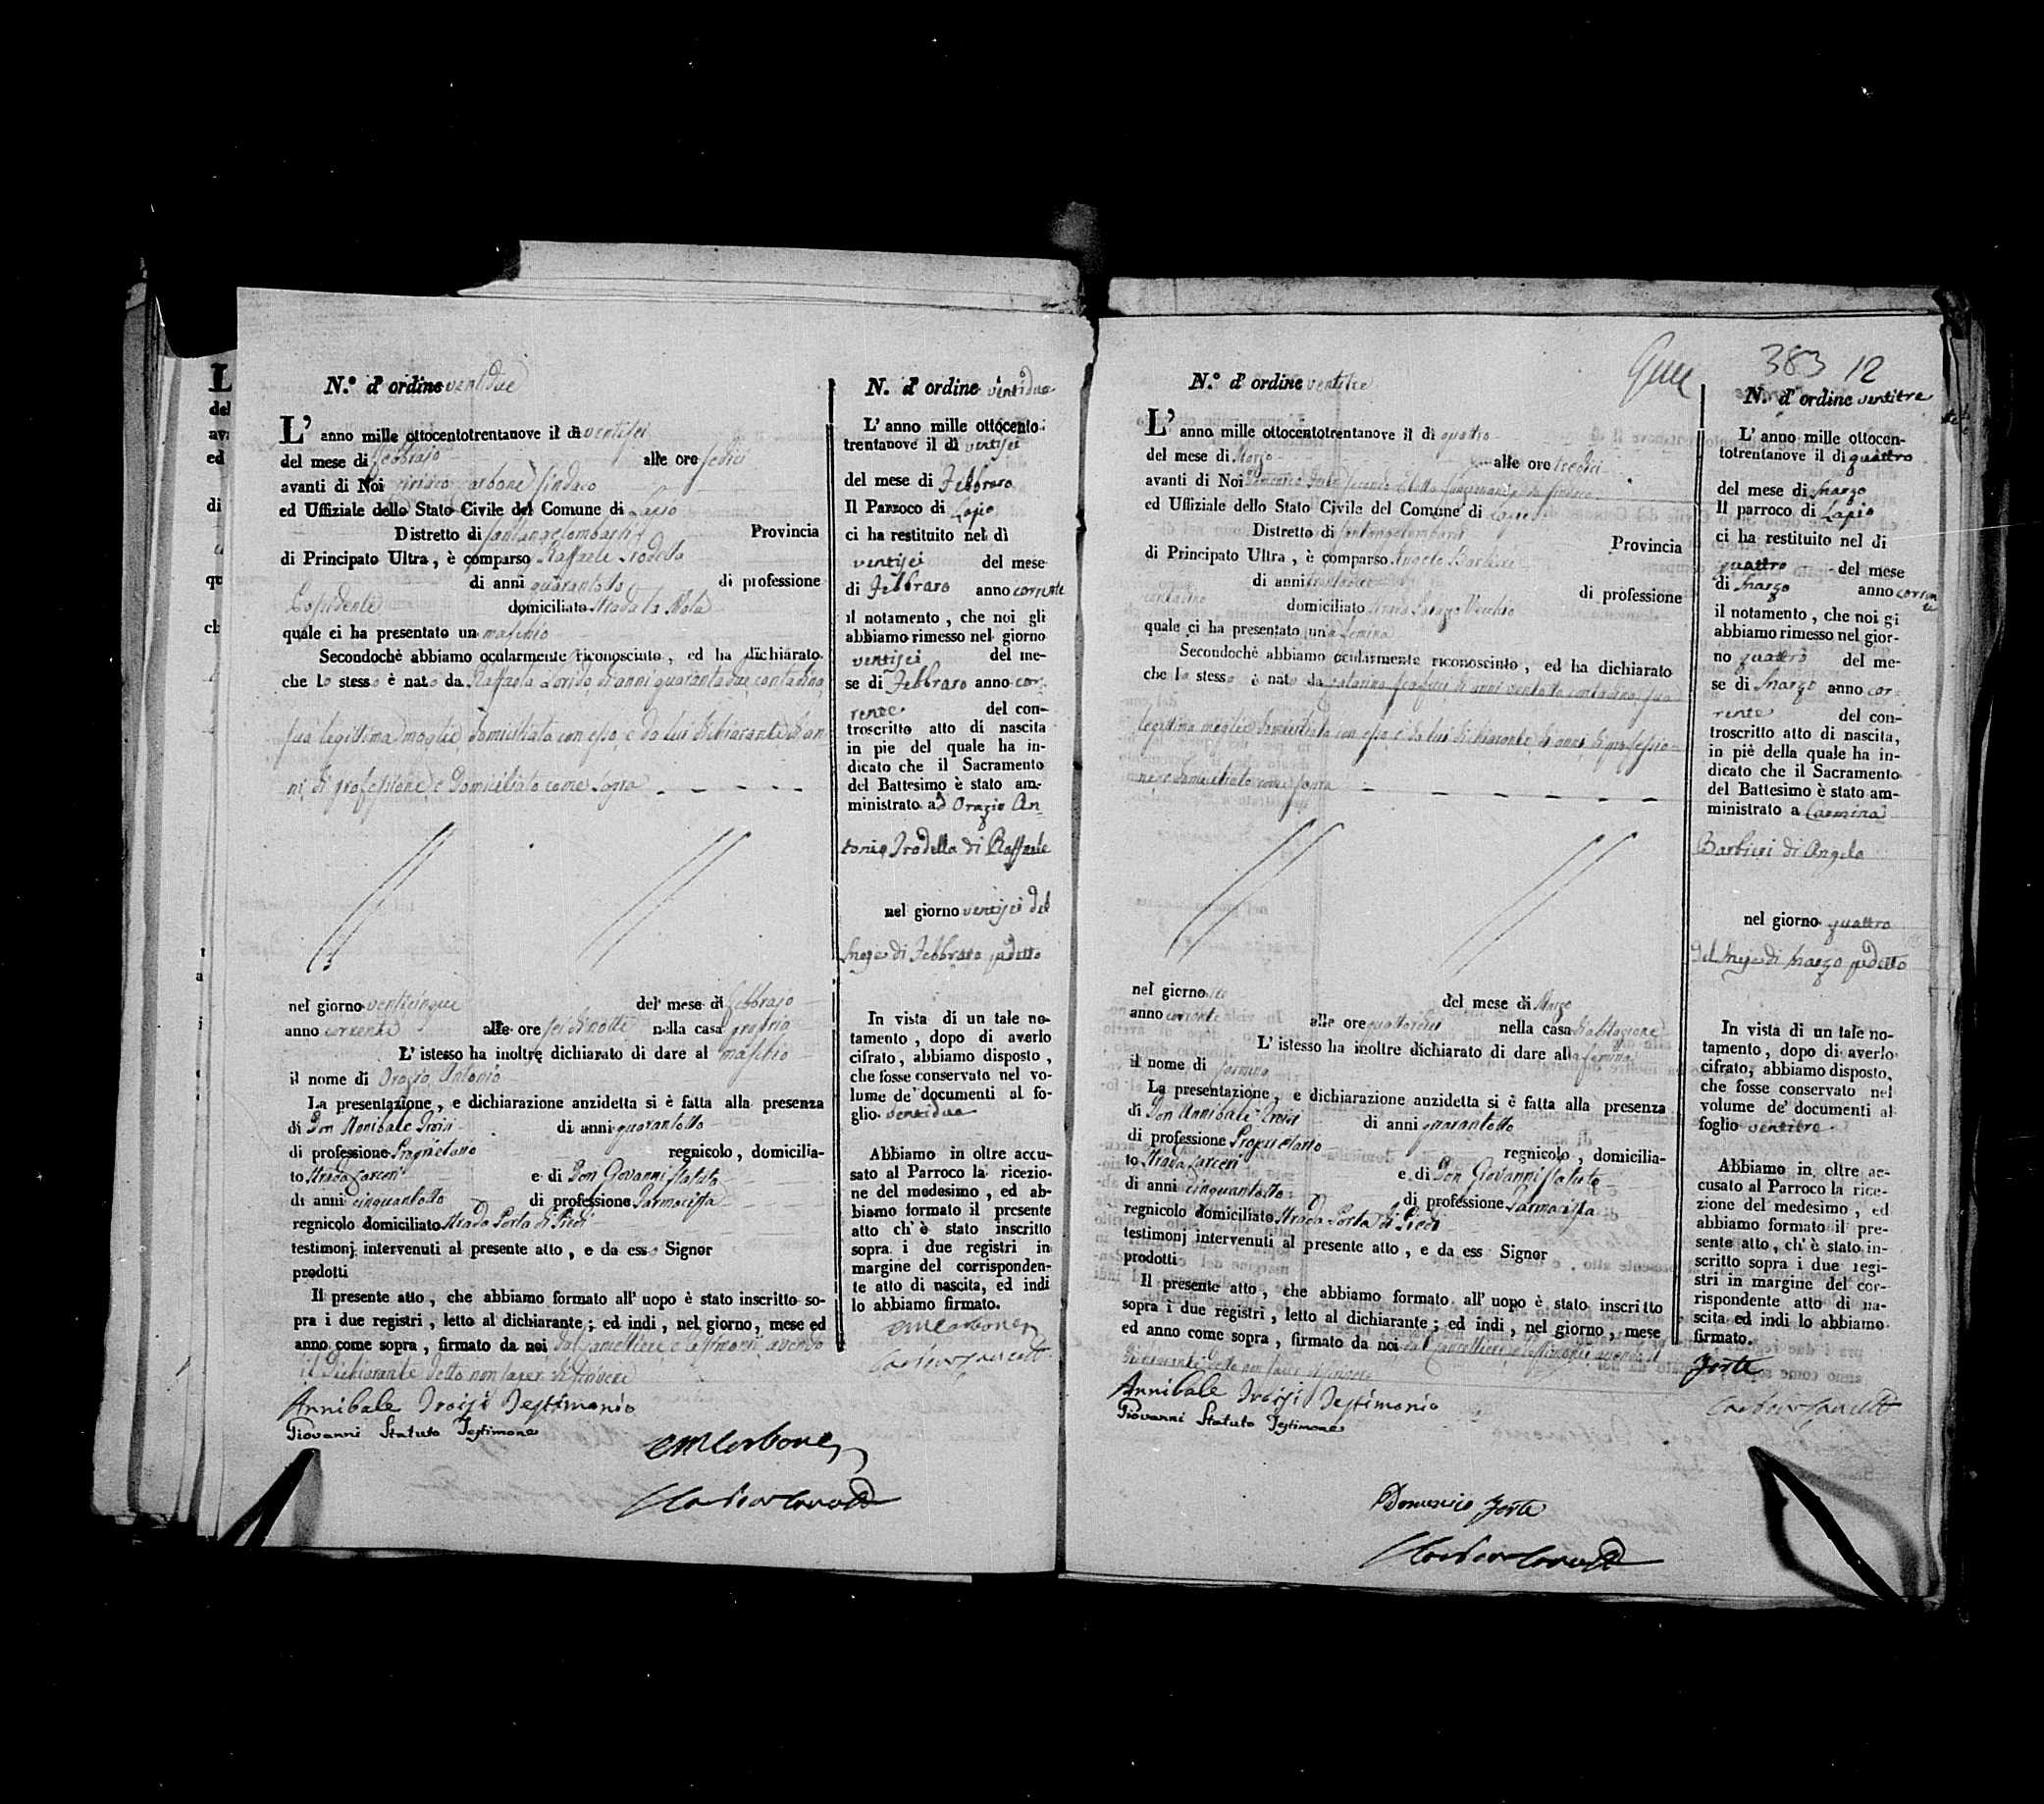 N.º d'ordine ventidue
L'anno mille ottocentotrentanove il dì ventisei
del mese di Febbrajo alle ore sedici
avanti di Noi Carbone Sindaco
ed Uffiziale dello Stato Civile del Comune di Lapio
Distretto di Santangelombardi Provincia
di Principato Ultra, è comparso Raffaele
di anni quarantotto di professione
Possidente domiciliato Strada la
quale ci ha presentato un maschio
Secondochè abbiamo ocularmente riconosciuto, ed ha dichiarato
che lo stesso è nato da Raffaela di anni quarantadue contadina
sua legittima moglie domiciliata con esso, e da lui dichiarante di an-
ni di professione e domiciliato come sopra
nel giorno venticinque del mese di Febbrajo
anno corrente alle ore sei di notte nella casa propria
L'istesso ha inoltre dichiarato di dare al maschio
il nome di Orazio Antonio
La presentazione, e dichiarazione anzidetta si è fatta alla presenza
di Don Annibale Troisi di anni quarantotto
di professione Proprietario regnicolo, domicilia-
to Strada Carceri e di Don Giovanni Statuto
di anni cinquantotto di professione Farmacista
regnicolo domiciliato Strada Porta di Piedi
testimonj intervenuti al presente atto, e da ess Signor
prodotti
Il presente atto, che abbiamo formato all'uopo è stato inscritto so-
pra i due registri, letto al dichiarante; ed indi, nel giorno, mese ed
anno come sopra, firmato da noi dal Cancelliere e testimoni avendo
il dichiarante detto non saper scrivere
Annibale Troisi Testimonio
Giovanni Statuto Testimone
Carbone
N. d'ordine ventidue
L'anno mille ottocento
trentanove il dì ventisei
del mese di Febbraro
Il Parroco di Lapio
ci ha restituito nel dì
ventisei del mese
di Febbraro anno corrente
il notamento, che noi gli
abbiamo rimesso nel giorno
ventisei del me-
se di Febbraro anno cor-
rente del con-
troscritto atto di nascita
in piè del quale ha in-
dicato che il Sacramento
del Battesimo è stato am-
ministrato ad Orazio An-
tonio Trodella di Raffaele
nel giorno ventisei del
mese di Febbraro pdetto
In vista di un tale no-
tamento, dopo di averlo
cifrato, abbiamo disposto,
che fosse conservato nel vo-
lume de' documenti al fo-
glio ventidue
Abbiamo in oltre accu-
sato al Parroco la ricezio-
ne del medesimo, ed ab-
biamo formato il presente
atto ch'è stato inscritto
sopra i due registri in
margine del corrisponden-
te atto di nascita, ed indi
lo abbiamo firmato.
Carbone
383 12
N.º d'ordine ventitre
L'anno mille ottocentotrentanove il dì quattro
del mese di Marzo alle ore tredici
avanti di Noi Domenico Forte Secondo Eletto funzionante da Sindaco
ed Uffiziale dello Stato Civile del Comune di Lapio
Distretto di Santangelombardi Provincia
di Principato Ultra, è comparso Angelo Barbieri
di anni di professione
contadino domiciliato Strada Palazzo Vecchio
quale ci ha presentato una femina
Secondochè abbiamo ocularmente riconosciuto, ed ha dichiarato
che la stessa è nata da Catarina di anni ventotto contadina sua
legittima moglie domiciliata con esso, e da lui dichiarante di anni di professio-
ne, e domiciliato come sopra
nel giorno del mese di Marzo
anno corrente alle ore quattordici nella casa d'abitazione
L'istesso ha inoltre dichiarato di dare alla femina
il nome di Carmina
La presentazione, e dichiarazione anzidetta si è fatta alla presenza
di Don Annibale Troisi di anni quarantotto
di professione Proprietario regnicolo, domicilia-
to Strada Carceri e di Don Giovanni Statuto
di anni cinquantotto di professione Farmacista
regnicolo domiciliato Strada Porta di Piedi
testimonj intervenuti al presente atto, e da ess Signor
prodotti
Il presente atto, che abbiamo formato all'uopo è stato inscritto
sopra i due registri, letto al dichiarante; ed indi, nel giorno, mese
ed anno come sopra, firmato da noi dal Cancelliere e testimonii avendo il
dichiarante detto non saper scrivere
Annibale Troisi Testimonio
Giovanni Statuto Testimone
Domenico Forte
N. d'ordine ventitre
L'anno mille ottocen-
totrentanove il dì quattro
del mese di Marzo
Il parroco di Lapio
ci ha restituito nel dì
quattro del mese
di Marzo anno corren
te
il notamento, che noi gi
abbiamo rimesso nel gior-
no quattro del me-
se di Marzo anno cor-
rente del con-
troscritto atto di nascita,
in piè della quale ha in-
dicato che il Sacramento
del Battesimo è stato am-
ministrato a Carmina
Barbieri di Angelo
nel giorno quattro
del mese di Marzo pdetto
In vista di un tale no-
tamento, dopo di averlo
cifrato, abbiamo disposto,
che fosse conservato nel
volume de' documenti al
foglio ventitre
Abbiamo in oltre ac-
cusato al Parroco la rice-
zione del medesimo, ed
abbiamo formato il pre-
sente atto, ch'è stato in-
scritto sopra i due regi-
stri in margine del cor-
rispondente atto di na-
scita ed indi lo abbiamo
firmato.
Forte